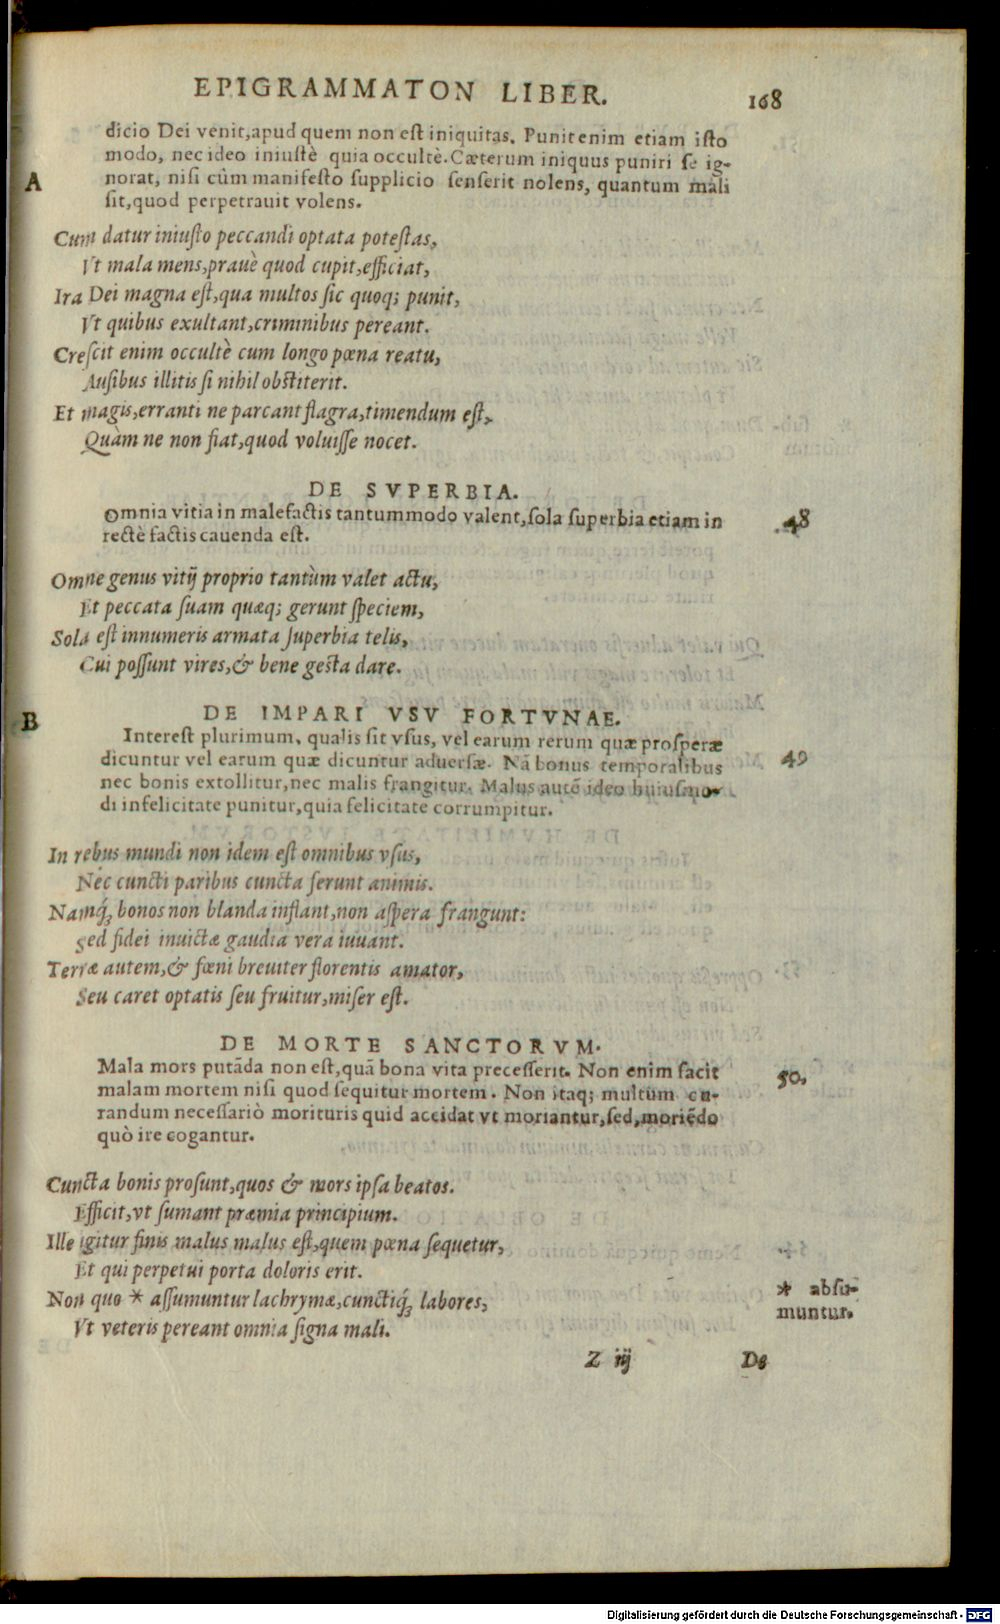 EPIGRAMMATON LIBER. 168
dicio Dei venit,apud quem non est iniquitas. Punit enim etiam isto
modo, nec ideo iniustè quia occultè. Cæterum iniquus puniri se ig-
A norat, nisi cùm manifesto supplicio senserit nolens, quantum mali
sit,quod perpetrauit volens.
Cum datur iniusto peccandi optata potestas,
Vt mala mens,prauè quod cupit,efficiat,
Ira Dei magna est,qua multos sic quoq; punit,
Vt quibus exultant,criminibus pereant.
Crescit enim occultè cum longo pœna reatu,
Ausibus illitis si nihil obstiterit.
Et magis,erranti ne parcant flagra,timendum est,
Quàm ne non fiat,quod voluisse nocet.
DE SVPERBIA.
Omnia vitia in malefactis tantummodo valent,sola superbia etiam in 48
rectè factis cauenda est.
Omne genus vitij proprio tantùm valet actu,
Et peccata suam quæq; gerunt speciem,
Sola est innumeris armata superbia telis,
Cui possunt vires,& bene gesta dare.
B DE IMPARI VSV FORTVNAE.
Interest plurimum, qualis sit vsus, vel earum rerum quæ prosperæ
dicuntur vel earum quæ dicuntur aduersæ. Nã bonus temporalibus 49
nec bonis extollitur,nec malis frangitur. Malus autẽ ideo huiusmo-
di infelicitate punitur,quia felicitate corrumpitur.
In rebus mundi non idem est omnibus vsus,
Nec cuncti paribus cuncta ferunt animis.
Namq́; bonos non blanda inflant,non aspera frangunt:
Sed fidei inuictæ gaudia vera iuuant.
Terræ autem,& fœni breuiter florentis amator,
Seu caret optatis seu fruitur,miser est.
DE MORTE SANCTORVM.
Mala mors putãda non est,quã bona vita precesserit. Non enim facit 50.
malam mortem nisi quod sequitur mortem. Non itaq; multùm cu-
randum necessariò morituris quid accidat vt moriantur,sed,moriẽdo
quò ire cogantur.
Cuncta bonis prosunt,quos & mors ipsa beatos.
Efficit,vt sumant præmia principium.
Ille igitur finis malus malus est,quem pœna sequetur,
Et qui perpetui porta doloris erit.
Non quo * assumuntur lachrymæ,cunctiq́; labores, * absu-
muntur.
Vt veteris pereant omnia signa mali.
Z iij De
Digitalisierung gefördert durch die Deutsche Forschungsgemeinschaft - DFG